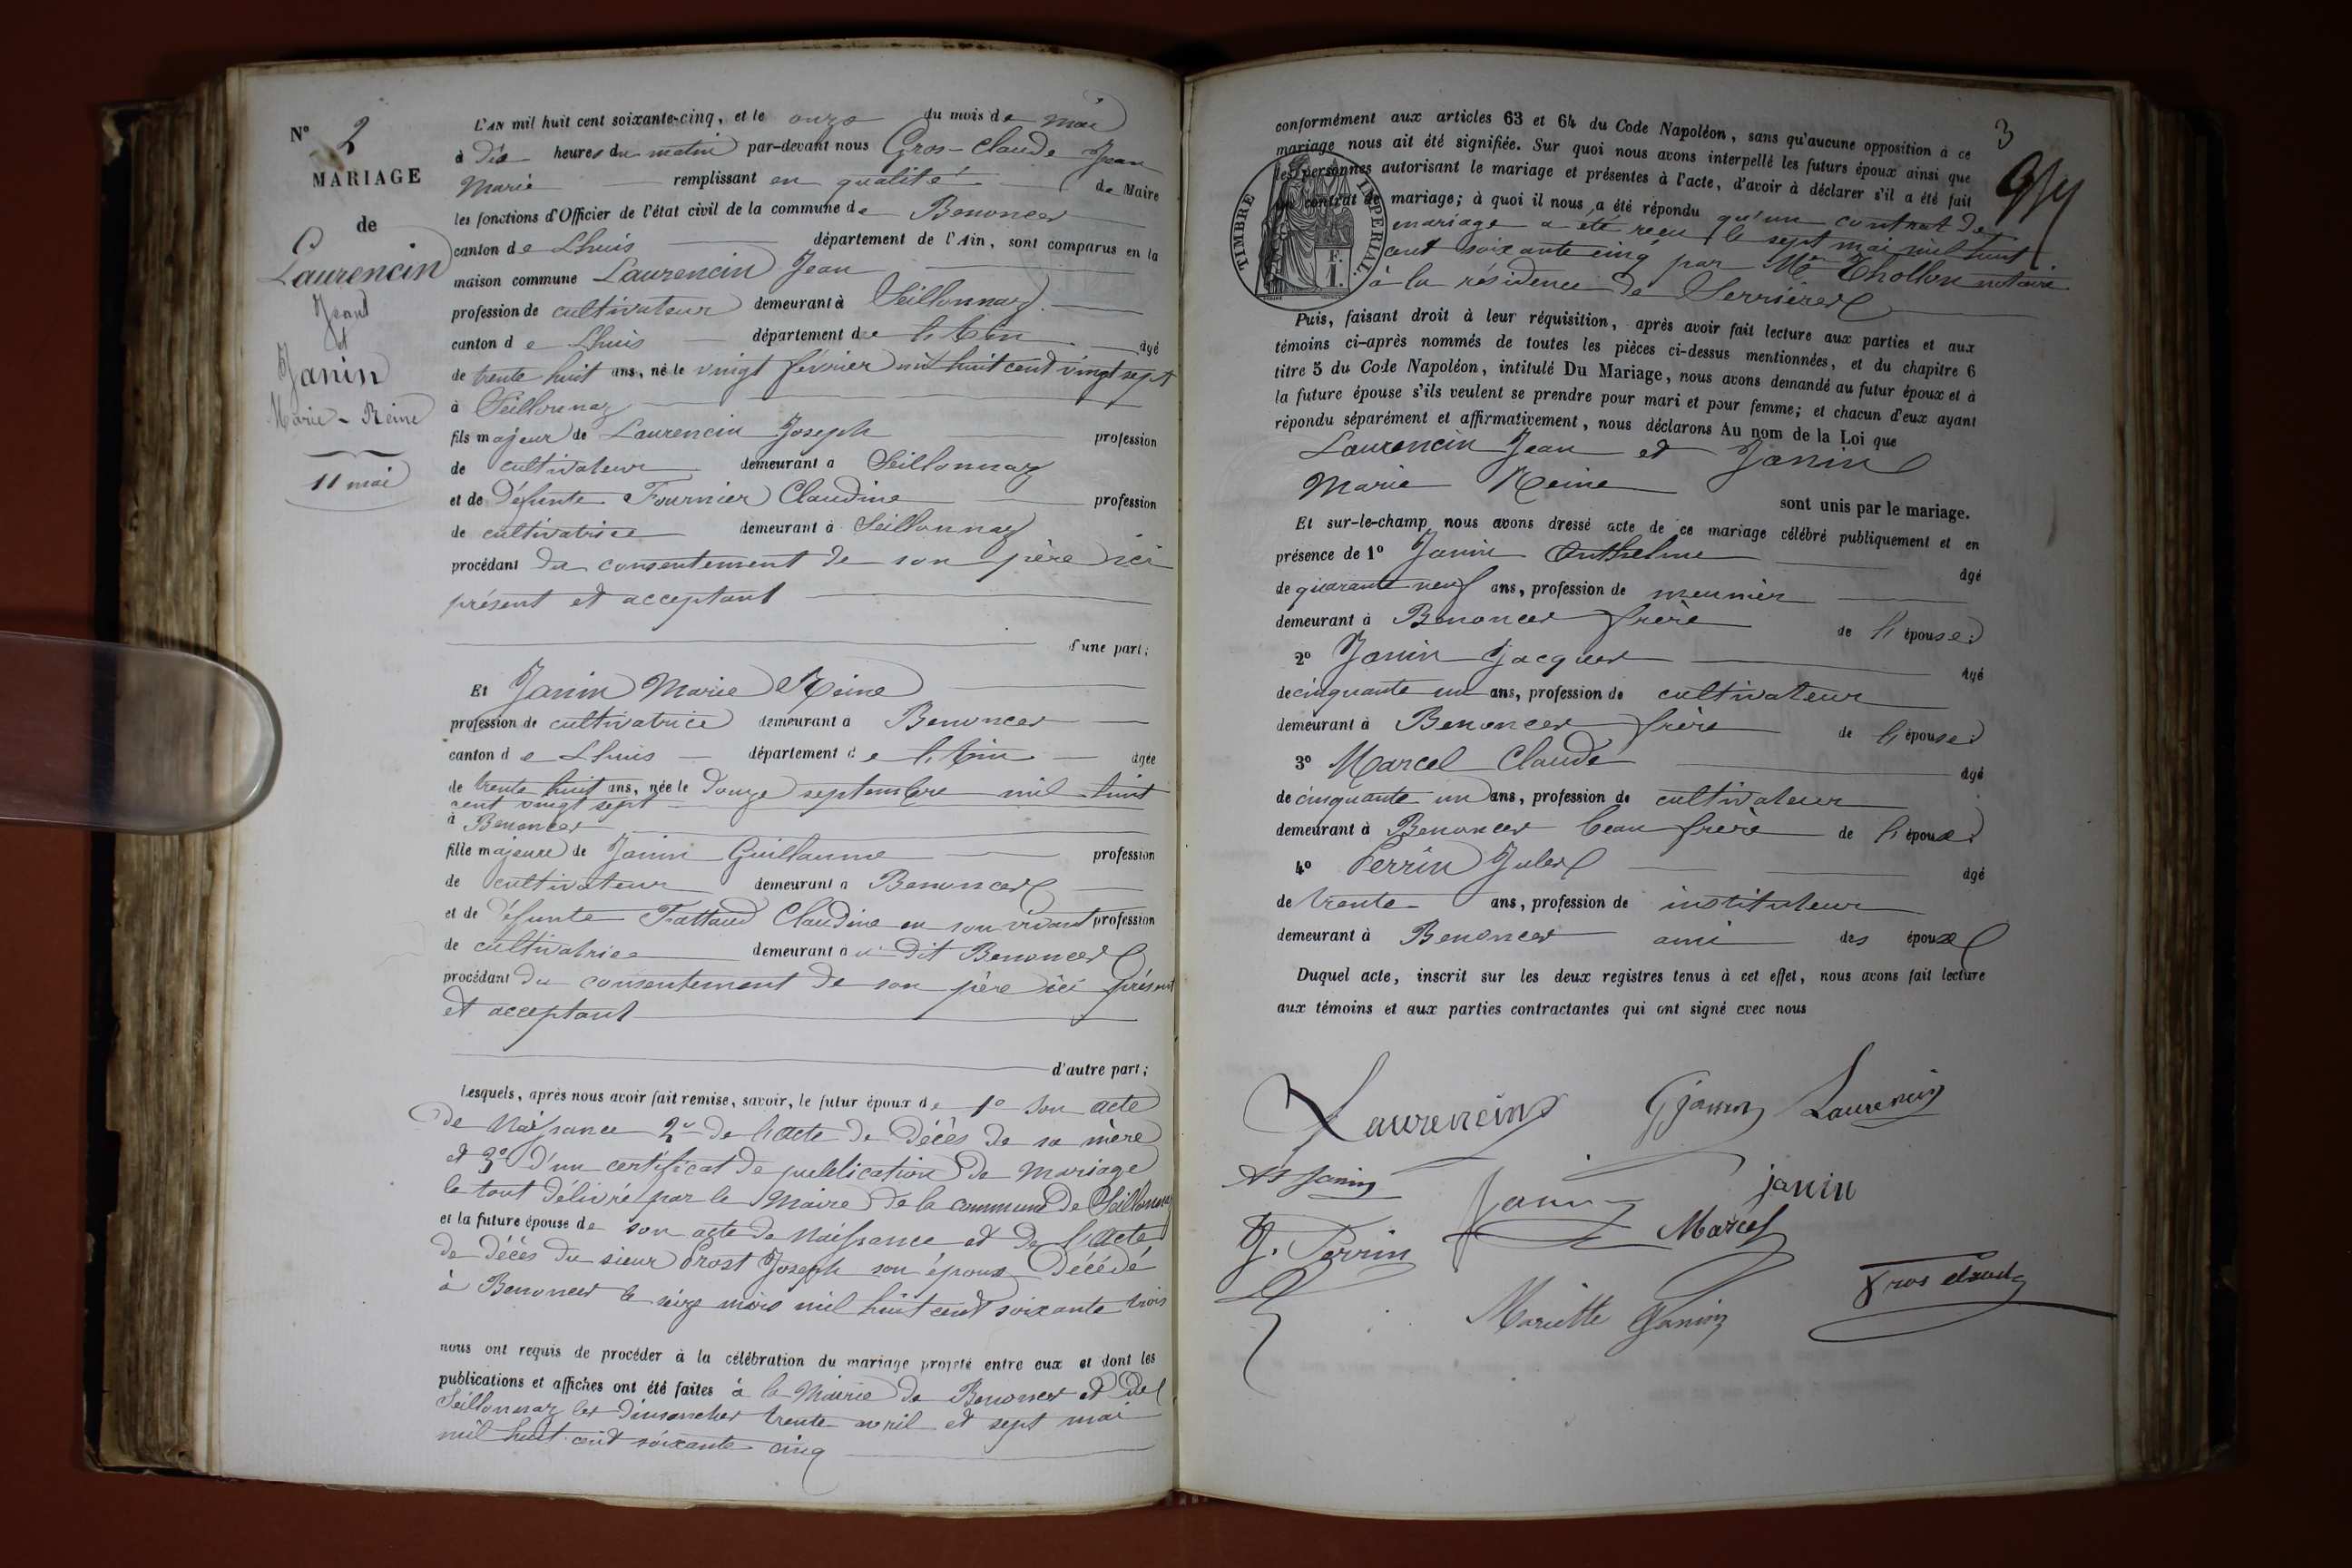 N° 2
MARIAGE
de
Laurencin
Jean
et
Janin
Marie-Reine
11 mai
L'AN mil huit cent soixante-cinq, et le onze du mois de mai
à dix heures du matin par-devant nous Gros-Claude Jean
Marie remplissant en qualité de Maire
les fonctions d'Officier de l'état civil de la commune de Benonces
canton de Lhuis département de l'Ain, sont comparus en la
maison commune Laurencin Jean
profession de cultivateur demeurant à Seillonnaz
canton de Lhuis département de l'Ain âgé
de trente huit ans, né le vingt février mil huit cent vingt sept
à Seillonnaz
fils majeur de Laurencin Joseph profession
de cultivateur demeurant à Seillonnaz
et de défunte Fournier Claudine profession
de cultivatrice demeurant à Seillonnaz
procédant du consentement de son père ici
présent et acceptant
d'une part;
Et Janin Marie Reine
profession de cultivatrice demeurant à Benonces
canton de Lhuis département de l'Ain agée
de trente huit ans, née le douze septembre mil huit
cent vingt sept
à Benonces
fille majeure de Janin Guillaume profession
de cultivateur demeurant à Benonces
et de défunte Trattaud Claudine en son vivant profession
de cultivatrice demeurant à dit Benonces
procédant du consentement de son père ici présent
et acceptant
d'autre part;
Lesquels, après nous avoir fait remise, savoir, le futur époux de 1° son acte
de naissance 2° de l'acte de décès de sa mère
et 3° d'un certificat de publication de mariage
le tout délivré par le Maire de la commune de Seillonnaz
et la future épouse de son acte de naissance et de l'acte
de décès du sieur Prost Joseph son époux décédé
à Benonces le seize mars mil huit cent soixante trois
nous ont requis de procéder à la célébration du mariage projeté entre eux et dont les
publications et affiches ont été faites à la Mairie de Benonces et de
Seillonnaz les dimanches trente avril et sept mai
mil huit cent soixante cinq
3
conformément aux articles 63 et 64 du Code Napoléon, sans qu'aucune opposition à ce
mariage nous ait été signifiée. Sur quoi nous avons interpellé les futurs époux ainsi que
les personnes autorisant le mariage et présentes à l'acte, d'avoir à déclarer s'il a été fait
un contrat de mariage; à quoi il nous a été répondu qu'un contrat de
mariage a été reçu le sept mai mil huit
cent soixante cinq par Me Thollon notaire
à la résidence de Serrières
TIMBRE IMPERIAL.
1 F.
Puis, faisant droit à leur réquisition, après avoir fait lecture aux parties et aux
témoins ci-après nommés de toutes les pièces ci-dessus mentionnées, et du chapitre 6
titre 5 du Code Napoléon, intitulé Du Mariage, nous avons demandé au futur époux et à
la future épouse s'ils veulent se prendre pour mari et pour femme; et chacun d'eux ayant
répondu séparément et affirmativement, nous déclarons Au nom de la Loi que
Laurencin Jean et Janin
Marie Reine
sont unis par le mariage.
Et sur-le-champ nous avons dressé acte de ce mariage célébré publiquement et en
présence de 1° Janin Anthelme âgé
de quarante neuf ans, profession de meunier
demeurant à Benonces frère de l'épouse
2° Janin Jacques âgé
de cinquante un ans, profession de cultivateur
demeurant à Benonces frère de l'épouse
3° Marcel Claude âgé
de cinquante un ans, profession de cultivateur
demeurant à Benonces beau frère de l'époux
4° Perrin Jules âgé
de trente ans, profession de instituteur
demeurant à Benonces ami des époux
Duquel acte, inscrit sur les deux registres tenus à cet effet, nous avons fait lecture
aux témoins et aux parties contractantes qui ont signé avec nous
Laurencin G Janin Laurencin
Janin Janin janin
J. Perrin Marcel
Mariette Janin Gros claude